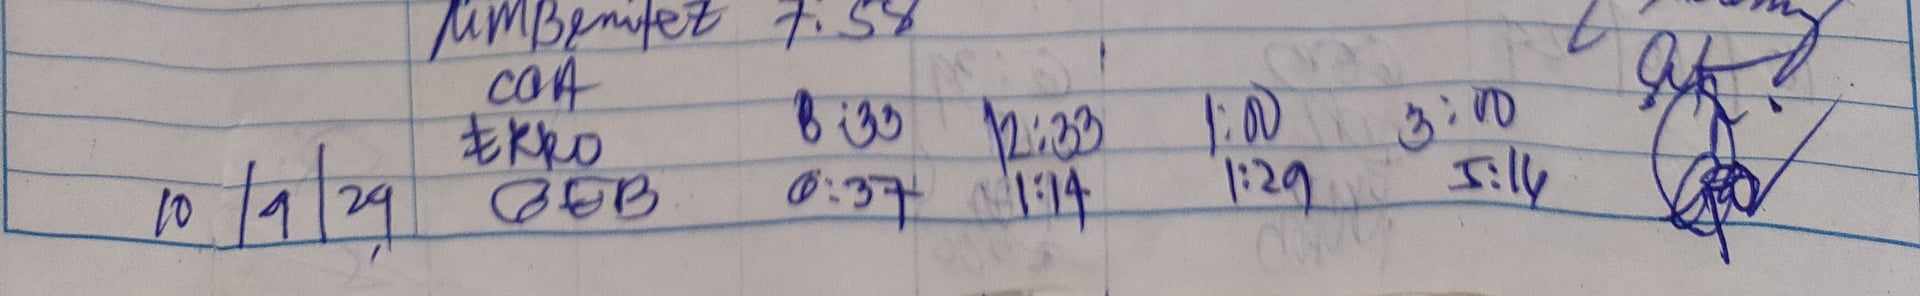 MMBenitez 7:58
COA
EKRO 8:33 12:33 1:00 3:00
10/9/29 GEB 6:37 1:14 1:29 5:14